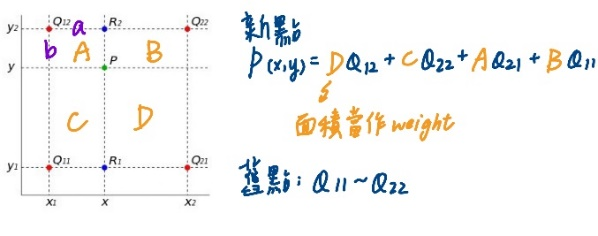 y₂ Q₁₂ a R₂ Q₂₂
b A B
y P
C D
y₁ Q₁₁ R₁ Q₂₁
x₁ x x₂
新點
P(x,y) = DQ₁₂ + CQ₂₂ + AQ₂₁ + BQ₁₁
面積當作weight
舊點: Q₁₁~Q₂₂